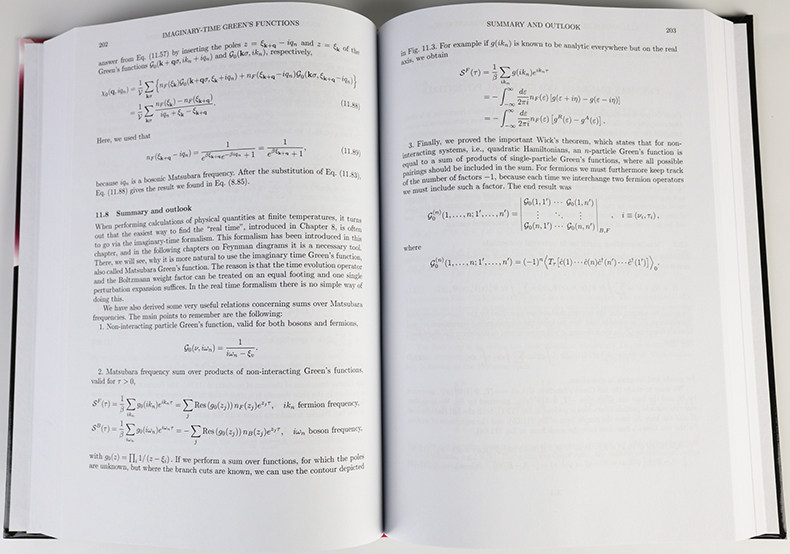 202
IMAGINARY-TIME GREEN'S FUNCTIONS
answer from Eq. (11.57) by inserting the poles z = ξ_{k+q} − iq_n and z = ξ_k of the
Green's functions 𝒢₀(k + qσ, ik_n + iq_n) and 𝒢₀(kσ, ik_n), respectively,
χ₀(q, iq_n) = 1/𝒱 ∑_{kσ} {n_F(ξ_k)𝒢₀(k+qσ, ξ_k + iq_n) + n_F(ξ_{k+q} − iq_n)𝒢₀(kσ, ξ_{k+q} − iq_n)}
= 1/𝒱 ∑_{kσ} (n_F(ξ_k) − n_F(ξ_{k+q})) / (iq_n + ξ_k − ξ_{k+q}). (11.88)
Here, we used that
n_F(ξ_{k+q} − iq_n) = 1/(e^{βξ_{k+q}−βiq_n} + 1) = 1/(e^{βξ_{k+q}} + 1), (11.89)
because iq_n is a bosonic Matsubara frequency. After the substitution of Eq. (11.83),
Eq. (11.88) gives the result we found in Eq. (8.85).
11.8 Summary and outlook
When performing calculations of physical quantities at finite temperatures, it turns
out that the easiest way to find the "real time", introduced in Chapter 8, is often
to go via the imaginary-time formalism. This formalism has been introduced in this
chapter, and in the following chapters on Feynman diagrams it is a necessary tool.
There, we will see, why it is more natural to use the imaginary time Green's function,
also called Matsubara Green's function. The reason is that the time evolution operator
and the Boltzmann weight factor can be treated on an equal footing and one single
perturbation expansion suffices. In the real time formalism there is no simple way of
doing this.
We have also derived some very useful relations concerning sums over Matsubara
frequencies. The main points to remember are the following:
1. Non-interacting particle Green's function, valid for both bosons and fermions,
𝒢₀(ν, iω_n) = 1/(iω_n − ξ_ν).
2. Matsubara frequency sum over products of non-interacting Green's functions,
valid for τ > 0,
S^F(τ) = 1/β ∑_{ik_n} g₀(ik_n)e^{ik_nτ} = ∑_j Res (g₀(z_j)) n_F(z_j)e^{z_jτ}, ik_n fermion frequency,
S^B(τ) = 1/β ∑_{iω_n} g₀(iω_n)e^{iω_nτ} = −∑_j Res (g₀(z_j)) n_B(z_j)e^{z_jτ}, iω_n boson frequency,
with g₀(z) = ∏_i 1/(z − ξ_i). If we perform a sum over functions, for which the poles
are unknown, but where the branch cuts are known, we can use the contour depicted
SUMMARY AND OUTLOOK
203
in Fig. 11.3. For example if g(ik_n) is known to be analytic everywhere but on the real
axis, we obtain
S^F(τ) = 1/β ∑_{ik_n} g(ik_n)e^{ik_nτ}
= −∫_{−∞}^{∞} dε/2πi n_F(ε) [g(ε + iη) − g(ε − iη)]
= −∫_{−∞}^{∞} dε/2πi n_F(ε) [g^R(ε) − g^A(ε)].
3. Finally, we proved the important Wick's theorem, which states that for non-
interacting systems, i.e., quadratic Hamiltonians, an n-particle Green's function is
equal to a sum of products of single-particle Green's functions, where all possible
pairings should be included in the sum. For fermions we must furthermore keep track
of the number of factors −1, because each time we interchange two fermion operators
we must include such a factor. The end result was
𝒢₀^{(n)}(1, . . . , n; 1′, . . . , n′) = |𝒢₀(1, 1′) ⋯ 𝒢₀(1, n′) ⋮ ⋱ ⋮ 𝒢₀(n, 1′) ⋯ 𝒢₀(n, n′)|_{B,F} , i ≡ (ν_i, τ_i) ,
where
𝒢₀^{(n)}(1, . . . , n; 1′, . . . , n′) = (−1)^n ⟨T_τ [ĉ(1) ⋯ ĉ(n)ĉ†(n′) ⋯ ĉ†(1′)]⟩₀.